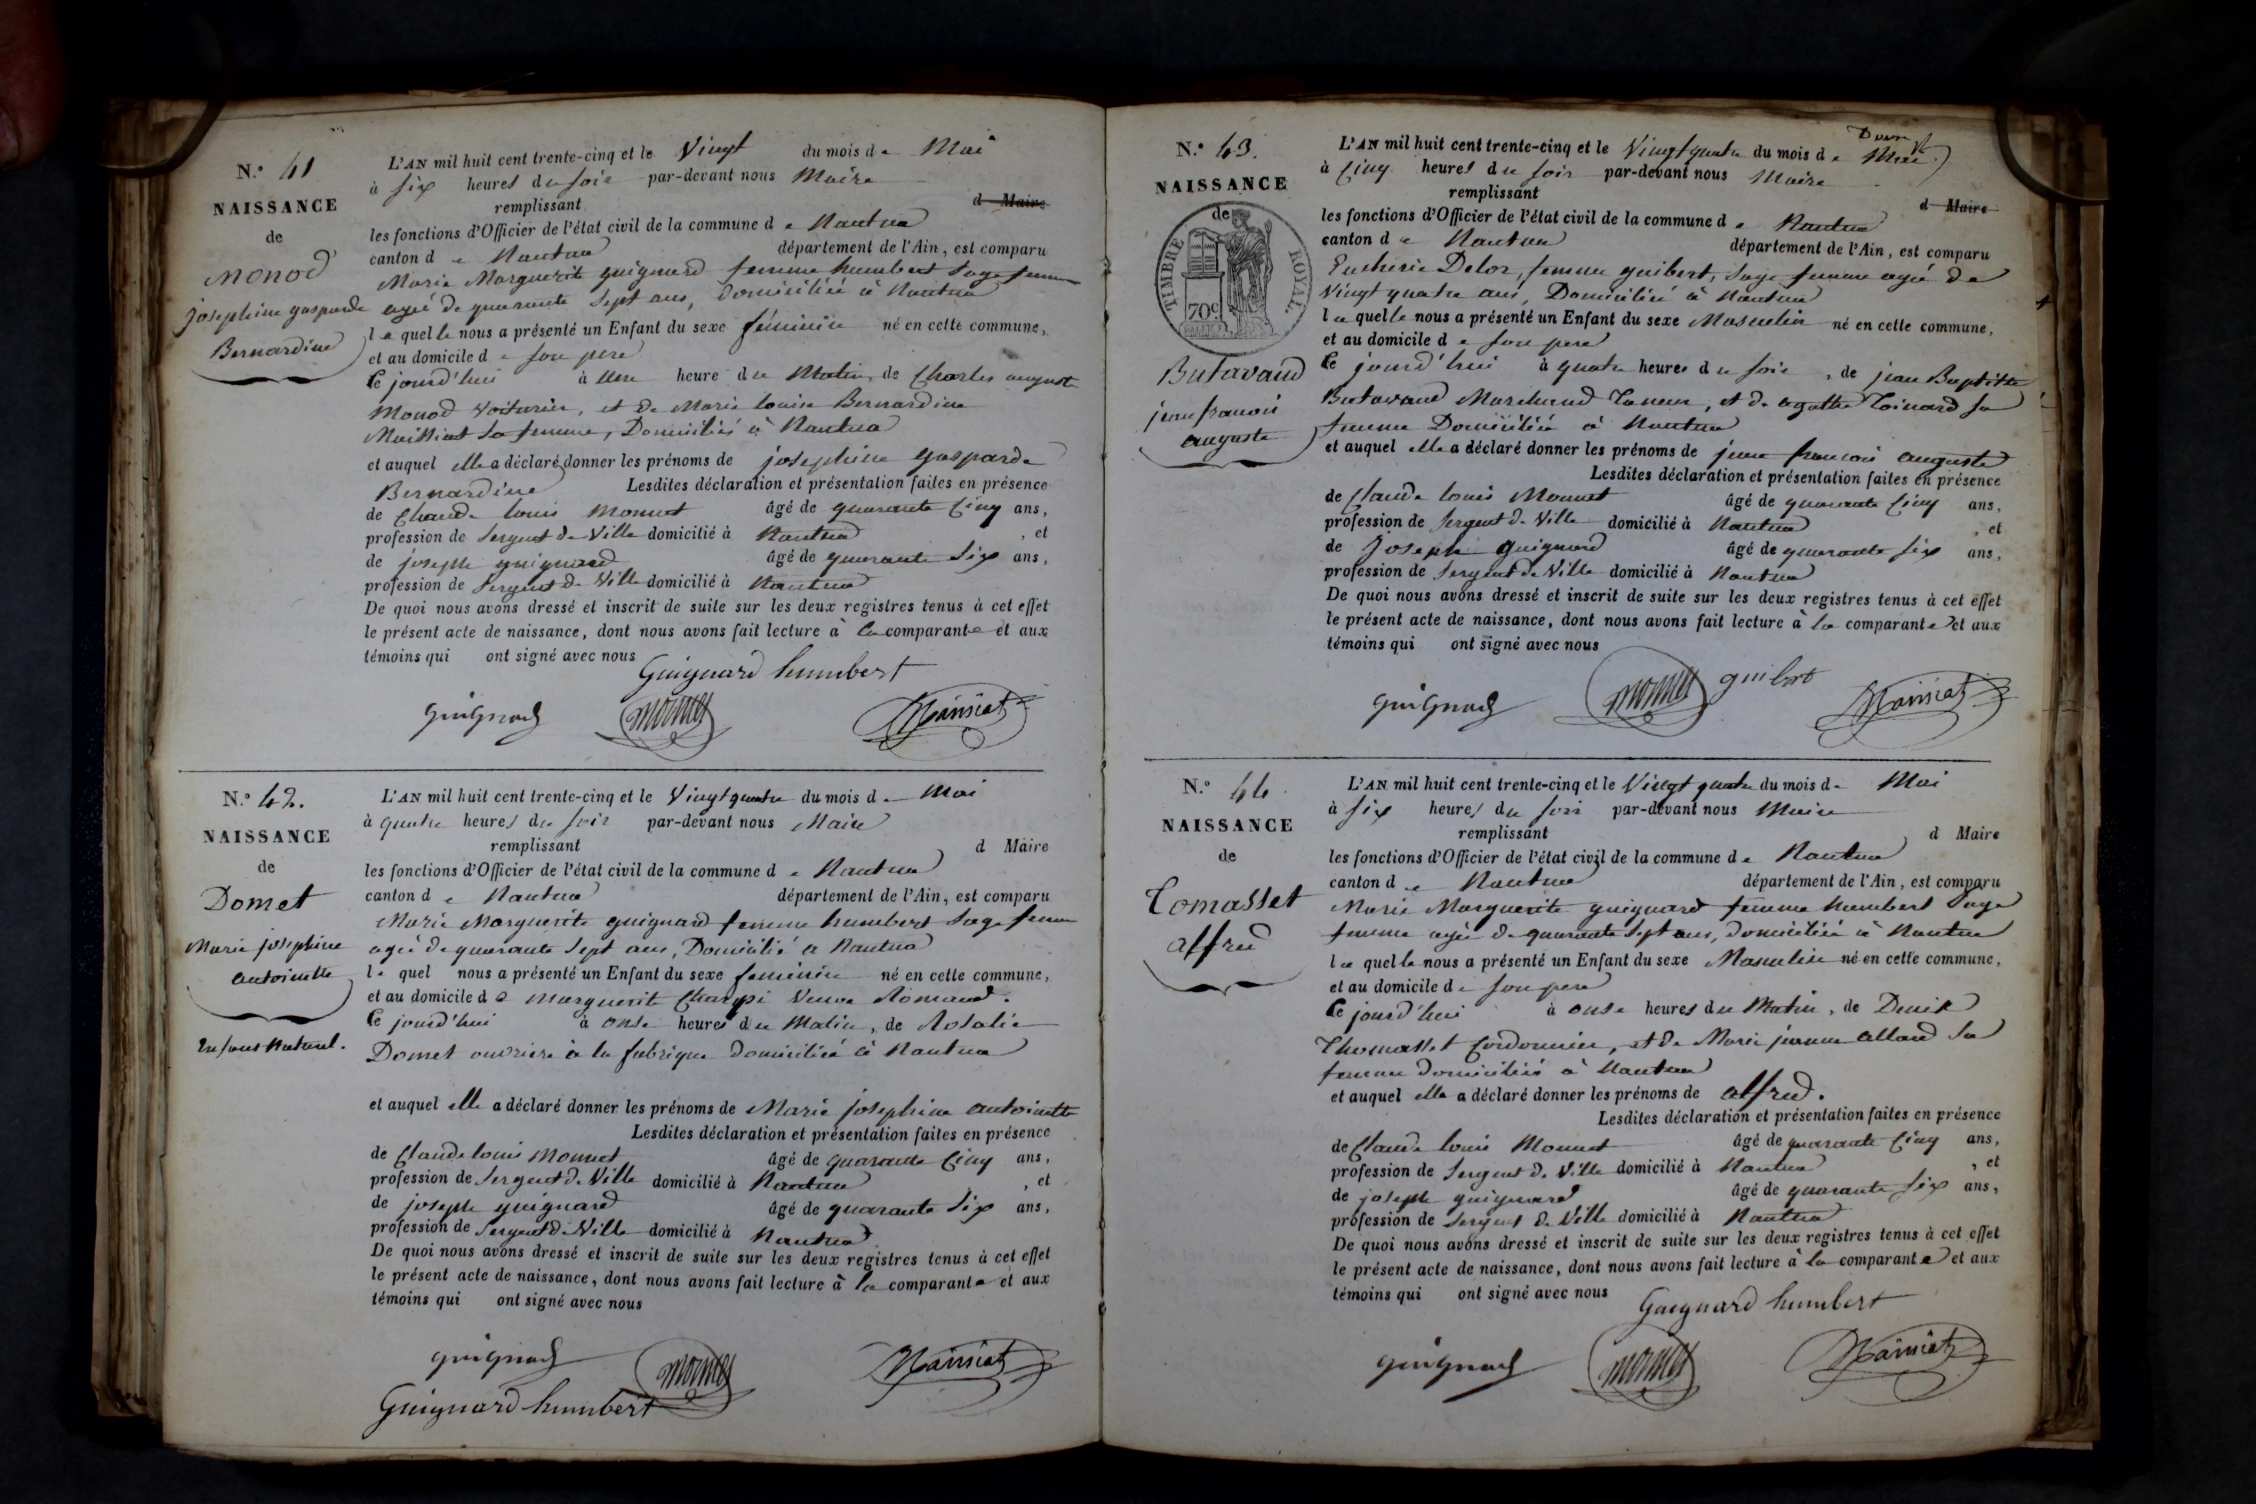 N.° 41
NAISSANCE
de
Monod
josephine gasparde
Bernardine
L'AN mil huit cent trente-cinq et le Vingt du mois de Mai
à six heures du soir par-devant nous Maire
remplissant d Maire
les fonctions d'Officier de l'état civil de la commune de Nantua
canton de Nantua département de l'Ain, est comparu
Marie Marguerite guignard femme humbert sage femme
agée de quarante sept ans, domiciliée à Nantua
laquelle nous a présenté un Enfant du sexe féminin né en cette commune,
et au domicile de son pere
Ce jourd'hui à une heure du Matin, de Charles auguste
Monod voiturier, et de Marie louise Bernardine
Maissiat sa femme, Domiciliés à Nantua
et auquel elle a déclaré donner les prénoms de josephine gasparde
Bernardine Lesdites déclaration et présentation faites en présence
de Claude louis Monnet âgé de quarante Cinq ans,
profession de Sergent de Ville domicilié à Nantua, et
de joseph guignard âgé de quarante Six ans,
profession de Sergent de Ville domicilié à Nantua
De quoi nous avons dressé et inscrit de suite sur les deux registres tenus à cet effet
le présent acte de naissance, dont nous avons fait lecture à la comparante et aux
témoins qui ont signé avec nous
Guignard humbert
guignard monnet Maissiat
N.° 42.
NAISSANCE
de
Domet
Marie josephine
antoinette
Enfant Naturel.
L'AN mil huit cent trente-cinq et le Vingt quatre du mois de Mai
à quatre heures du soir par-devant nous Maire
remplissant d Maire
les fonctions d'Officier de l'état civil de la commune de Nantua
canton de Nantua département de l'Ain, est comparu
Marie Marguerite guignard femme humbert sage femme
agée de quarante sept ans, Domicilié a Nantua
le quel nous a présenté un Enfant du sexe feminin né en cette commune,
et au domicile de Marguerit Veuve
Ce jourd'hui à onse heures du Matin, de Rosalie
Domet ouvriere à la fabrique domiciliée à Nantua
et auquel elle a déclaré donner les prénoms de Marie josephine antoinette
Lesdites déclaration et présentation faites en présence
de Claude louis Monnet âgé de quarante Cinq ans,
profession de Sergent de Ville domicilié à Nantua, et
de joseph guignard âgé de quarante Six ans,
profession de Sergent de Ville domicilié à Nantua
De quoi nous avons dressé et inscrit de suite sur les deux registres tenus à cet effet
le présent acte de naissance, dont nous avons fait lecture à la comparante et aux
témoins qui ont signé avec nous
guignard monnet Maissiat
Guignard humbert
N.° 43.
NAISSANCE
de
TIMBRE ROYAL
70c
Butavand
jean francois
auguste
L'AN mil huit cent trente-cinq et le Vingt quatre du mois de Mai
à Cinq heures du soir par-devant nous Maire
remplissant d Maire
les fonctions d'Officier de l'état civil de la commune de Nantua
canton de Nantua département de l'Ain, est comparu
Delor, femme guibert, sage femme agée de
Vingt quatre ans, Domiciliée à Nantua
laquelle nous a présenté un Enfant du sexe Masculin né en cette commune,
et au domicile de son pere
Ce jourd'hui à quatre heures du soir, de jean Baptiste
Butavand Marchand Taneur, et de agathe Toinard sa
femme Domiciliée à Nantua
et auquel elle a déclaré donner les prénoms de jean francois auguste
Lesdites déclaration et présentation faites en présence
de Claude louis Monnet âgé de quarante Cinq ans,
profession de Sergent de Ville domicilié à Nantua, et
de Joseph guignard âgé de quarante six ans,
profession de Sergent de Ville domicilié à Nantua
De quoi nous avons dressé et inscrit de suite sur les deux registres tenus à cet effet
le présent acte de naissance, dont nous avons fait lecture à la comparante et aux
témoins qui ont signé avec nous
guignard monnet guibert Maissiat
N.° 44.
NAISSANCE
de
Tomasset
alfred
L'AN mil huit cent trente-cinq et le Vingt quatre du mois de Mai
à six heures du soir par-devant nous Maire
remplissant d Maire
les fonctions d'Officier de l'état civil de la commune de Nantua
canton de Nantua département de l'Ain, est comparu
Marie Marguerite guignard femme humbert sage
femme agée de quarante sept ans, domiciliée à Nantua
laquelle nous a présenté un Enfant du sexe Masculin né en cette commune,
et au domicile de son pere
Ce jourd'hui à onse heures du Matin, de Denis
Thomasset Cordonnier, et de Marie jeanne alland sa
femme domiciliés à Nantua
et auquel elle a déclaré donner les prénoms de alfred.
Lesdites déclaration et présentation faites en présence
de Claude louis Monnet âgé de quarante Cinq ans,
profession de Sergent de Ville domicilié à Nantua, et
de joseph guignard âgé de quarante six ans,
profession de Sergent de Ville domicilié à Nantua
De quoi nous avons dressé et inscrit de suite sur les deux registres tenus à cet effet
le présent acte de naissance, dont nous avons fait lecture à la comparante et aux
témoins qui ont signé avec nous
Guignard humbert
guignard monnet Maissiat